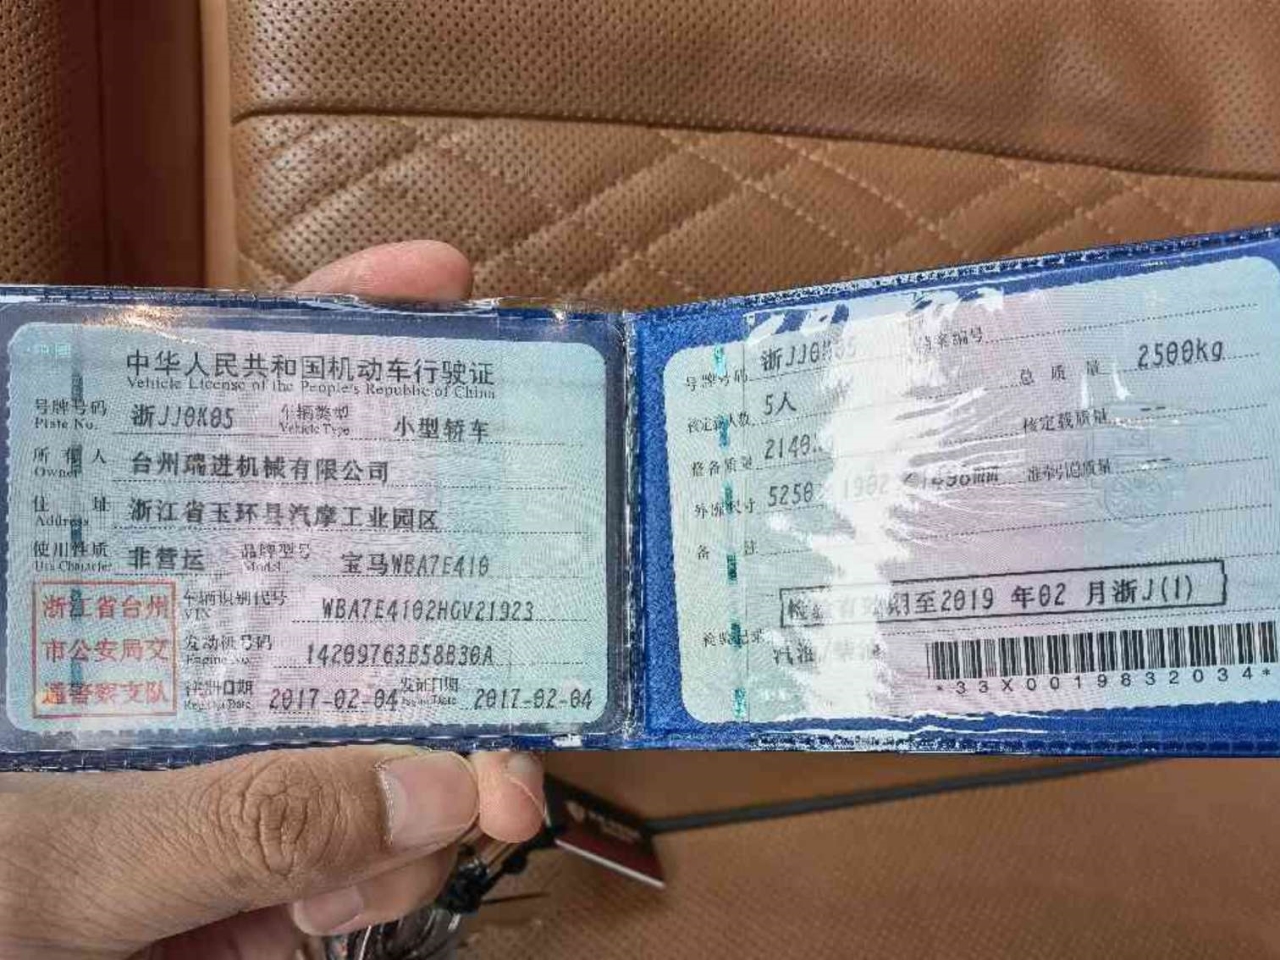 中华人民共和国机动车行驶证
Vehicle License of the People's Republic of China
号牌号码 浙JJ0K05 车辆类型 小型轿车
Plate No. Vehicle Type
所有人 台州瑞进机械有限公司
Owner
住址 浙江省玉环县汽摩工业园区
Address
使用性质 非营运 品牌型号 宝马WBA7E410
Use Character Model
浙江省台州
市公安局交
通警察支队
车辆识别代号 WBA7E4102HGV21923
VIN
发动机号码 14209763B58B30A
Engine No.
注册日期 2017-02-04 发证日期 2017-02-04
Register Date Issue Date
号牌号码 浙JJ0K05 档案编号
核定载人数 5人 总质量 2500kg
整备质量 2140kg 核定载质量 --
外廓尺寸 5250× 1902 ×1498mm 准牵引总质量 --
备注
检验有效期至2019 年02 月浙J(1)
检验记录
汽油
*33X0019832034*